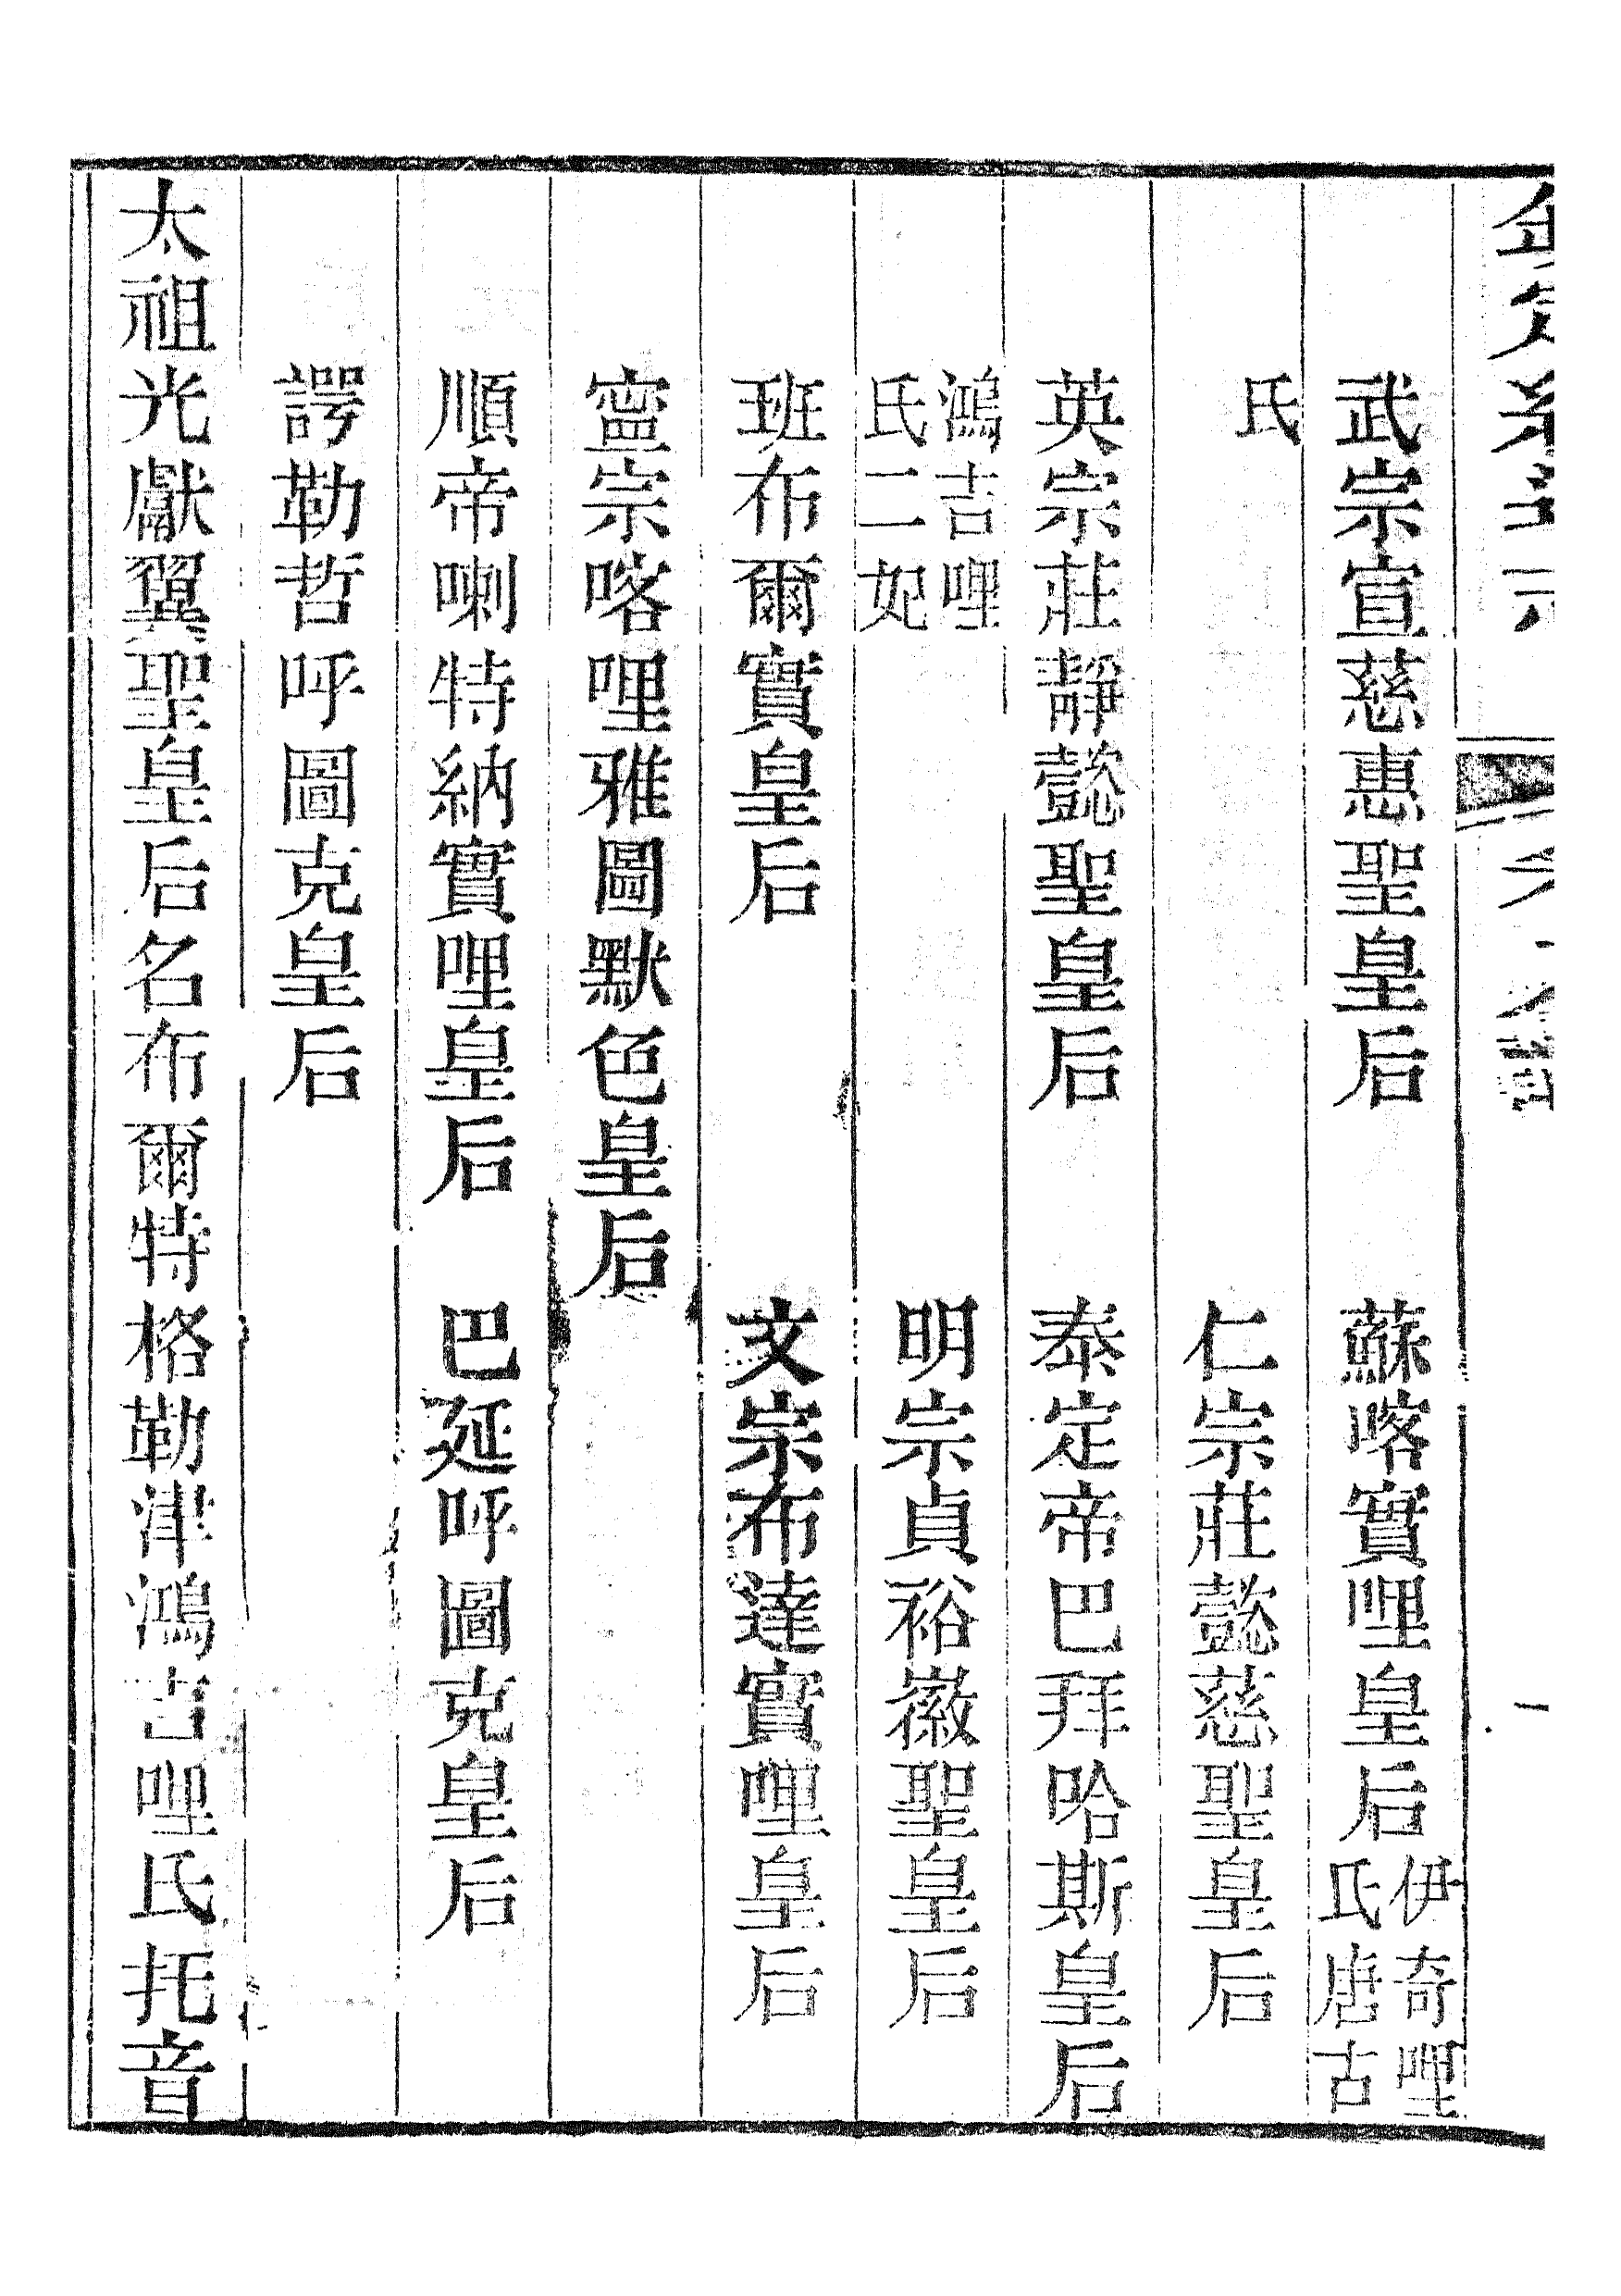 武宗宣慈惠聖皇后　蘇喀實哩皇后伊奇哩氏唐古
氏　仁宗莊懿慈聖皇后
英宗莊靜懿聖皇后　泰定帝巴拜哈斯皇后
鴻吉哩氏二妃　明宗貞裕徽聖皇后
班布爾實皇后　文宗布達實哩皇后
寧宗喀哩雅圖默色皇后
順帝喇特納實哩皇后　巴延呼圖克皇后
諤勒哲呼圖克皇后
太祖光獻翼聖皇后名布爾特格勒津鴻吉哩氏托音